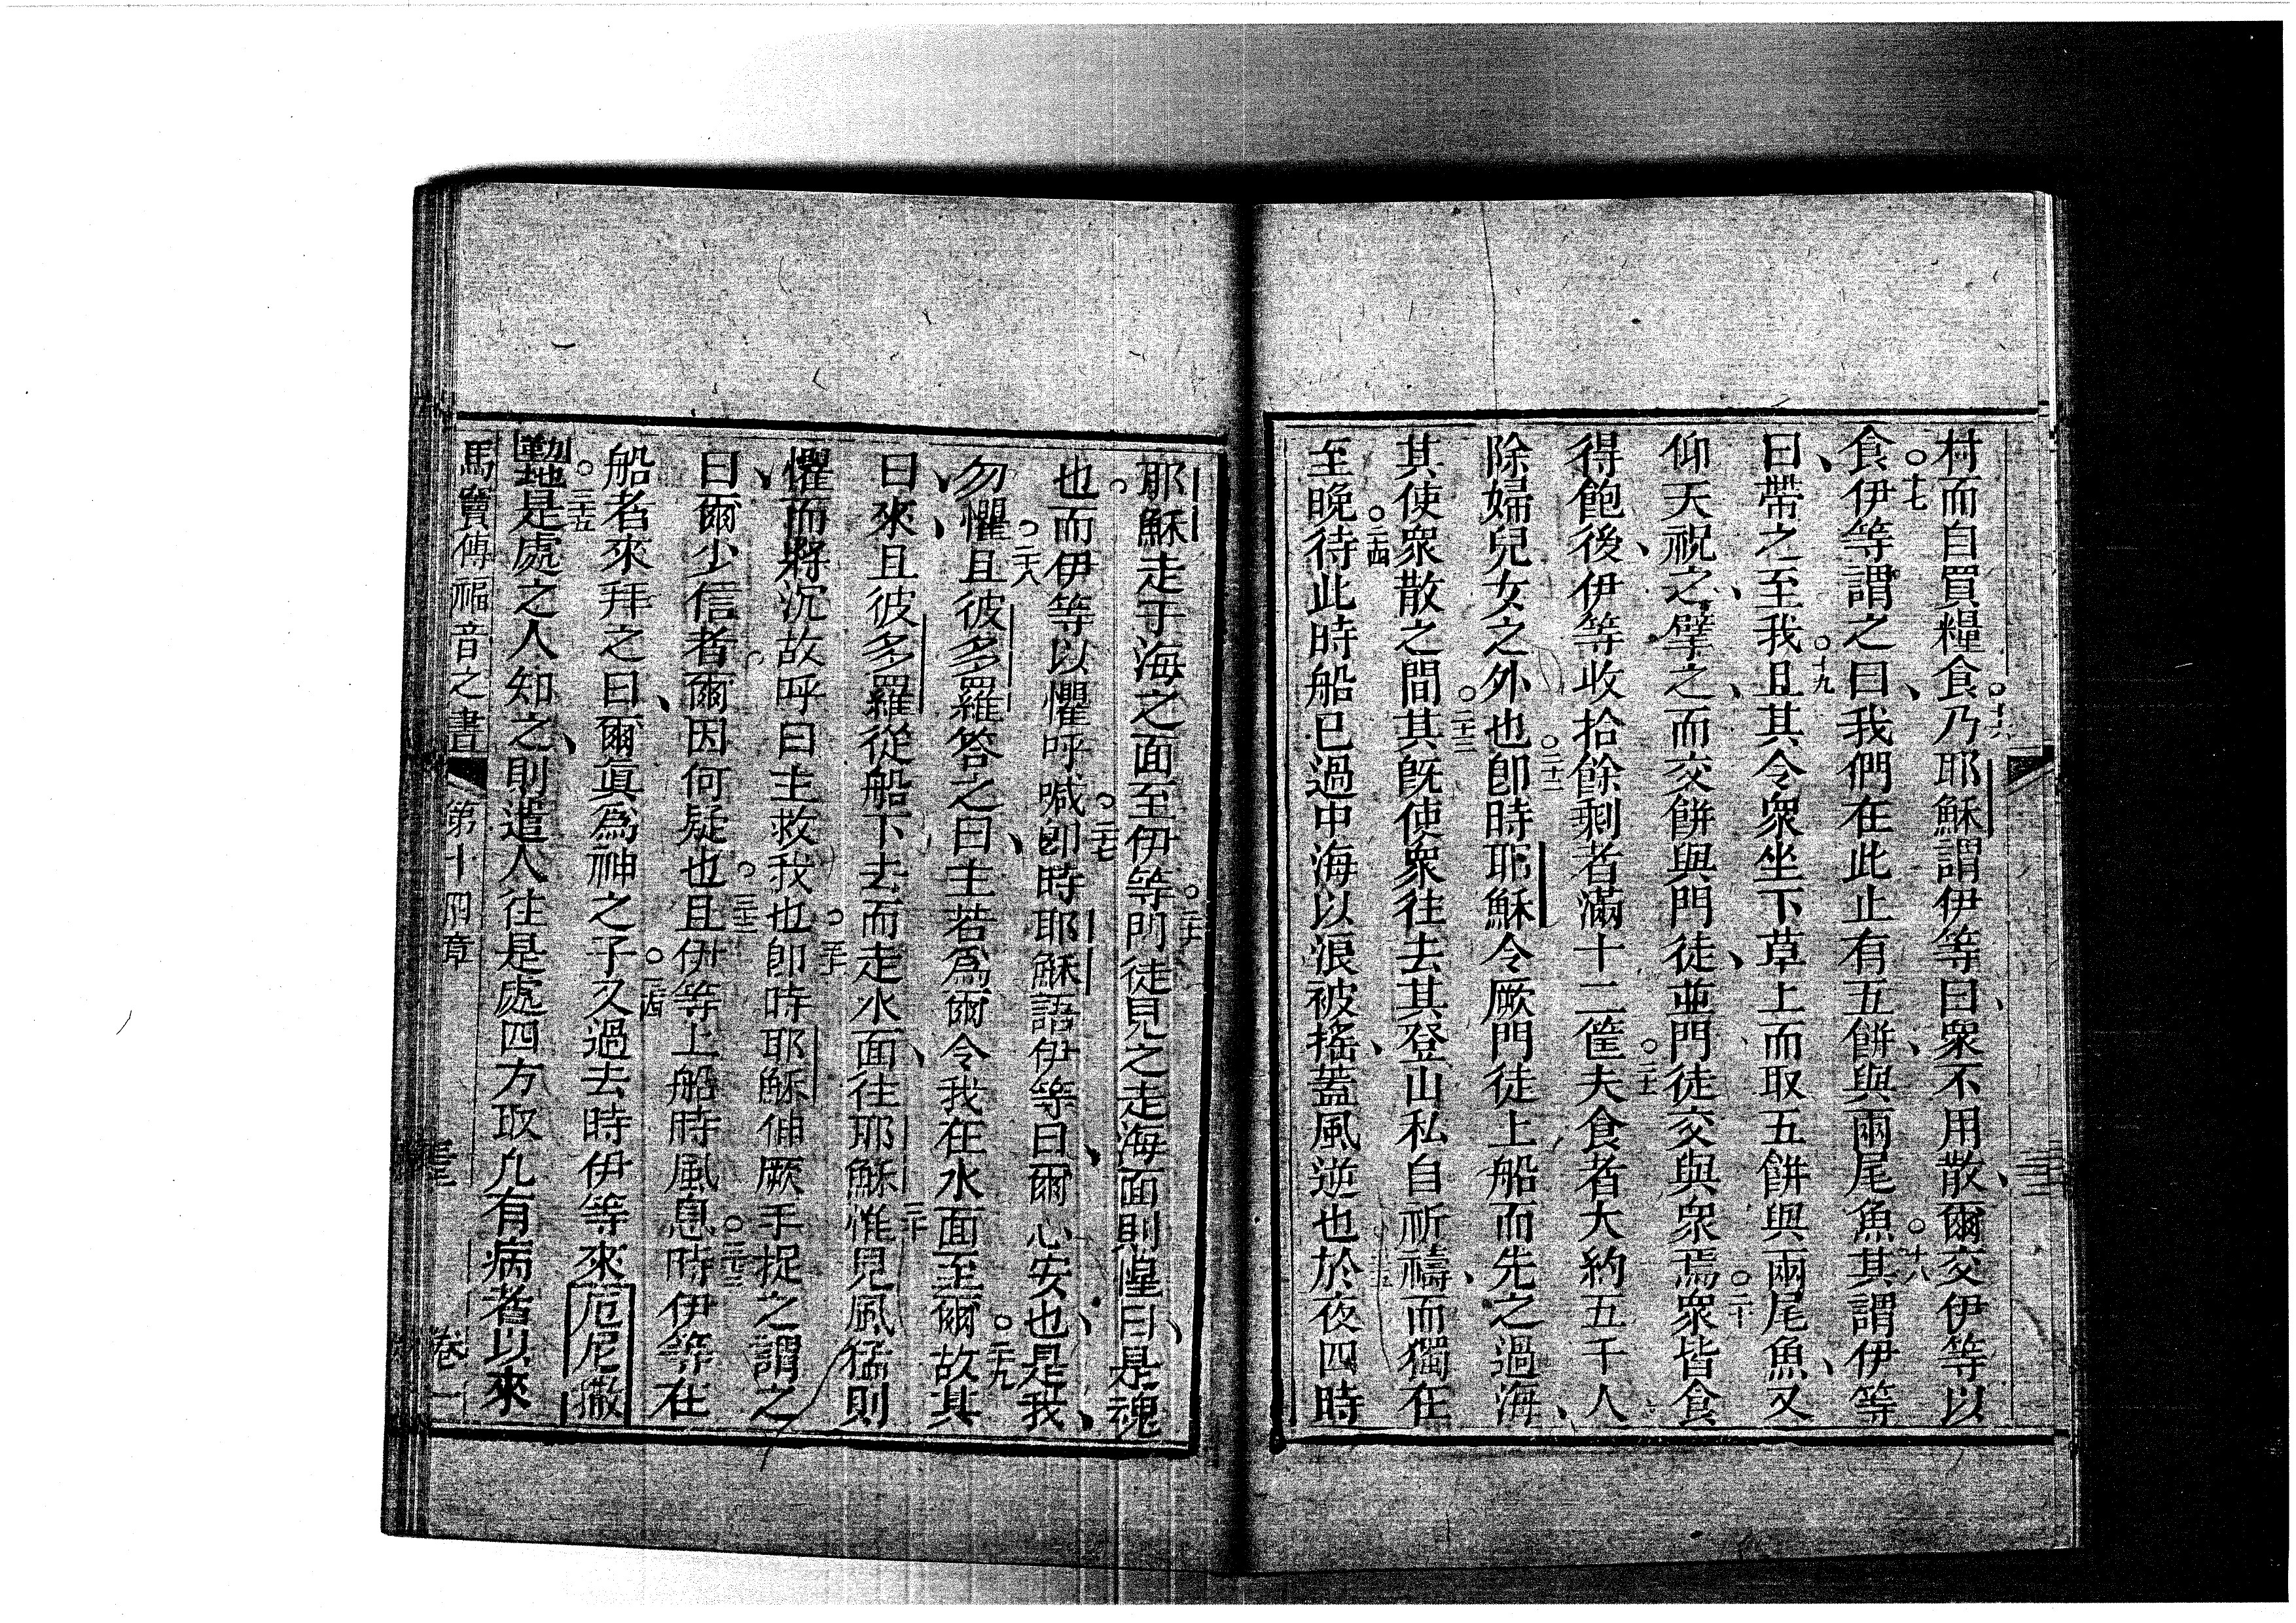 村而自買糧食。十六乃耶穌謂伊等曰、衆不用散、爾交伊等以
食。十七伊等謂之曰、我們在此止有五餅、與兩尾魚。十八其謂伊等
曰、帶之至我。十九且其令衆坐下草上而取五餅與兩尾魚、又
仰天祝之、擘之、而交餅與門徒、並門徒交與衆焉。二十衆皆食
得飽後、伊等收拾餘剩者滿十二筐。二十一夫食者大約五千人
除婦兒女之外也。二十二卽時耶穌令厥門徒上船而先之過海、
其使衆散之間。二十三其旣使衆往去其登山私自祈禱、而獨在
至晚。二十四待此時船已過中海以浪被搖、蓋風逆也。二十五於夜四時
耶穌走于海之面至伊等。二十六門徒見之走海面則惶曰、是魂
也。而伊等以懼呼喊。二十七卽時耶穌語伊等曰、爾心安也、是我、
勿懼。二十八且彼多羅答之曰、主若爲爾令我在水面至爾。二十九故其
曰、來、且彼多羅從船下去而走水面、往耶穌。三十惟見風猛則
懼、而將沉故呼曰主救我也。三十一卽時耶穌伸厥手捉之謂之
曰、爾少信者。爾因何疑也。三十二且伊等上船時風息。三十三時伊等在
船者來拜之曰、爾眞爲神之子。三十四又過去時伊等來厄尼撒
勒地。三十五是處之人知之、則遣人往是處四方取凡有病者以來
馬竇傳福音之書 第十四章 卷一